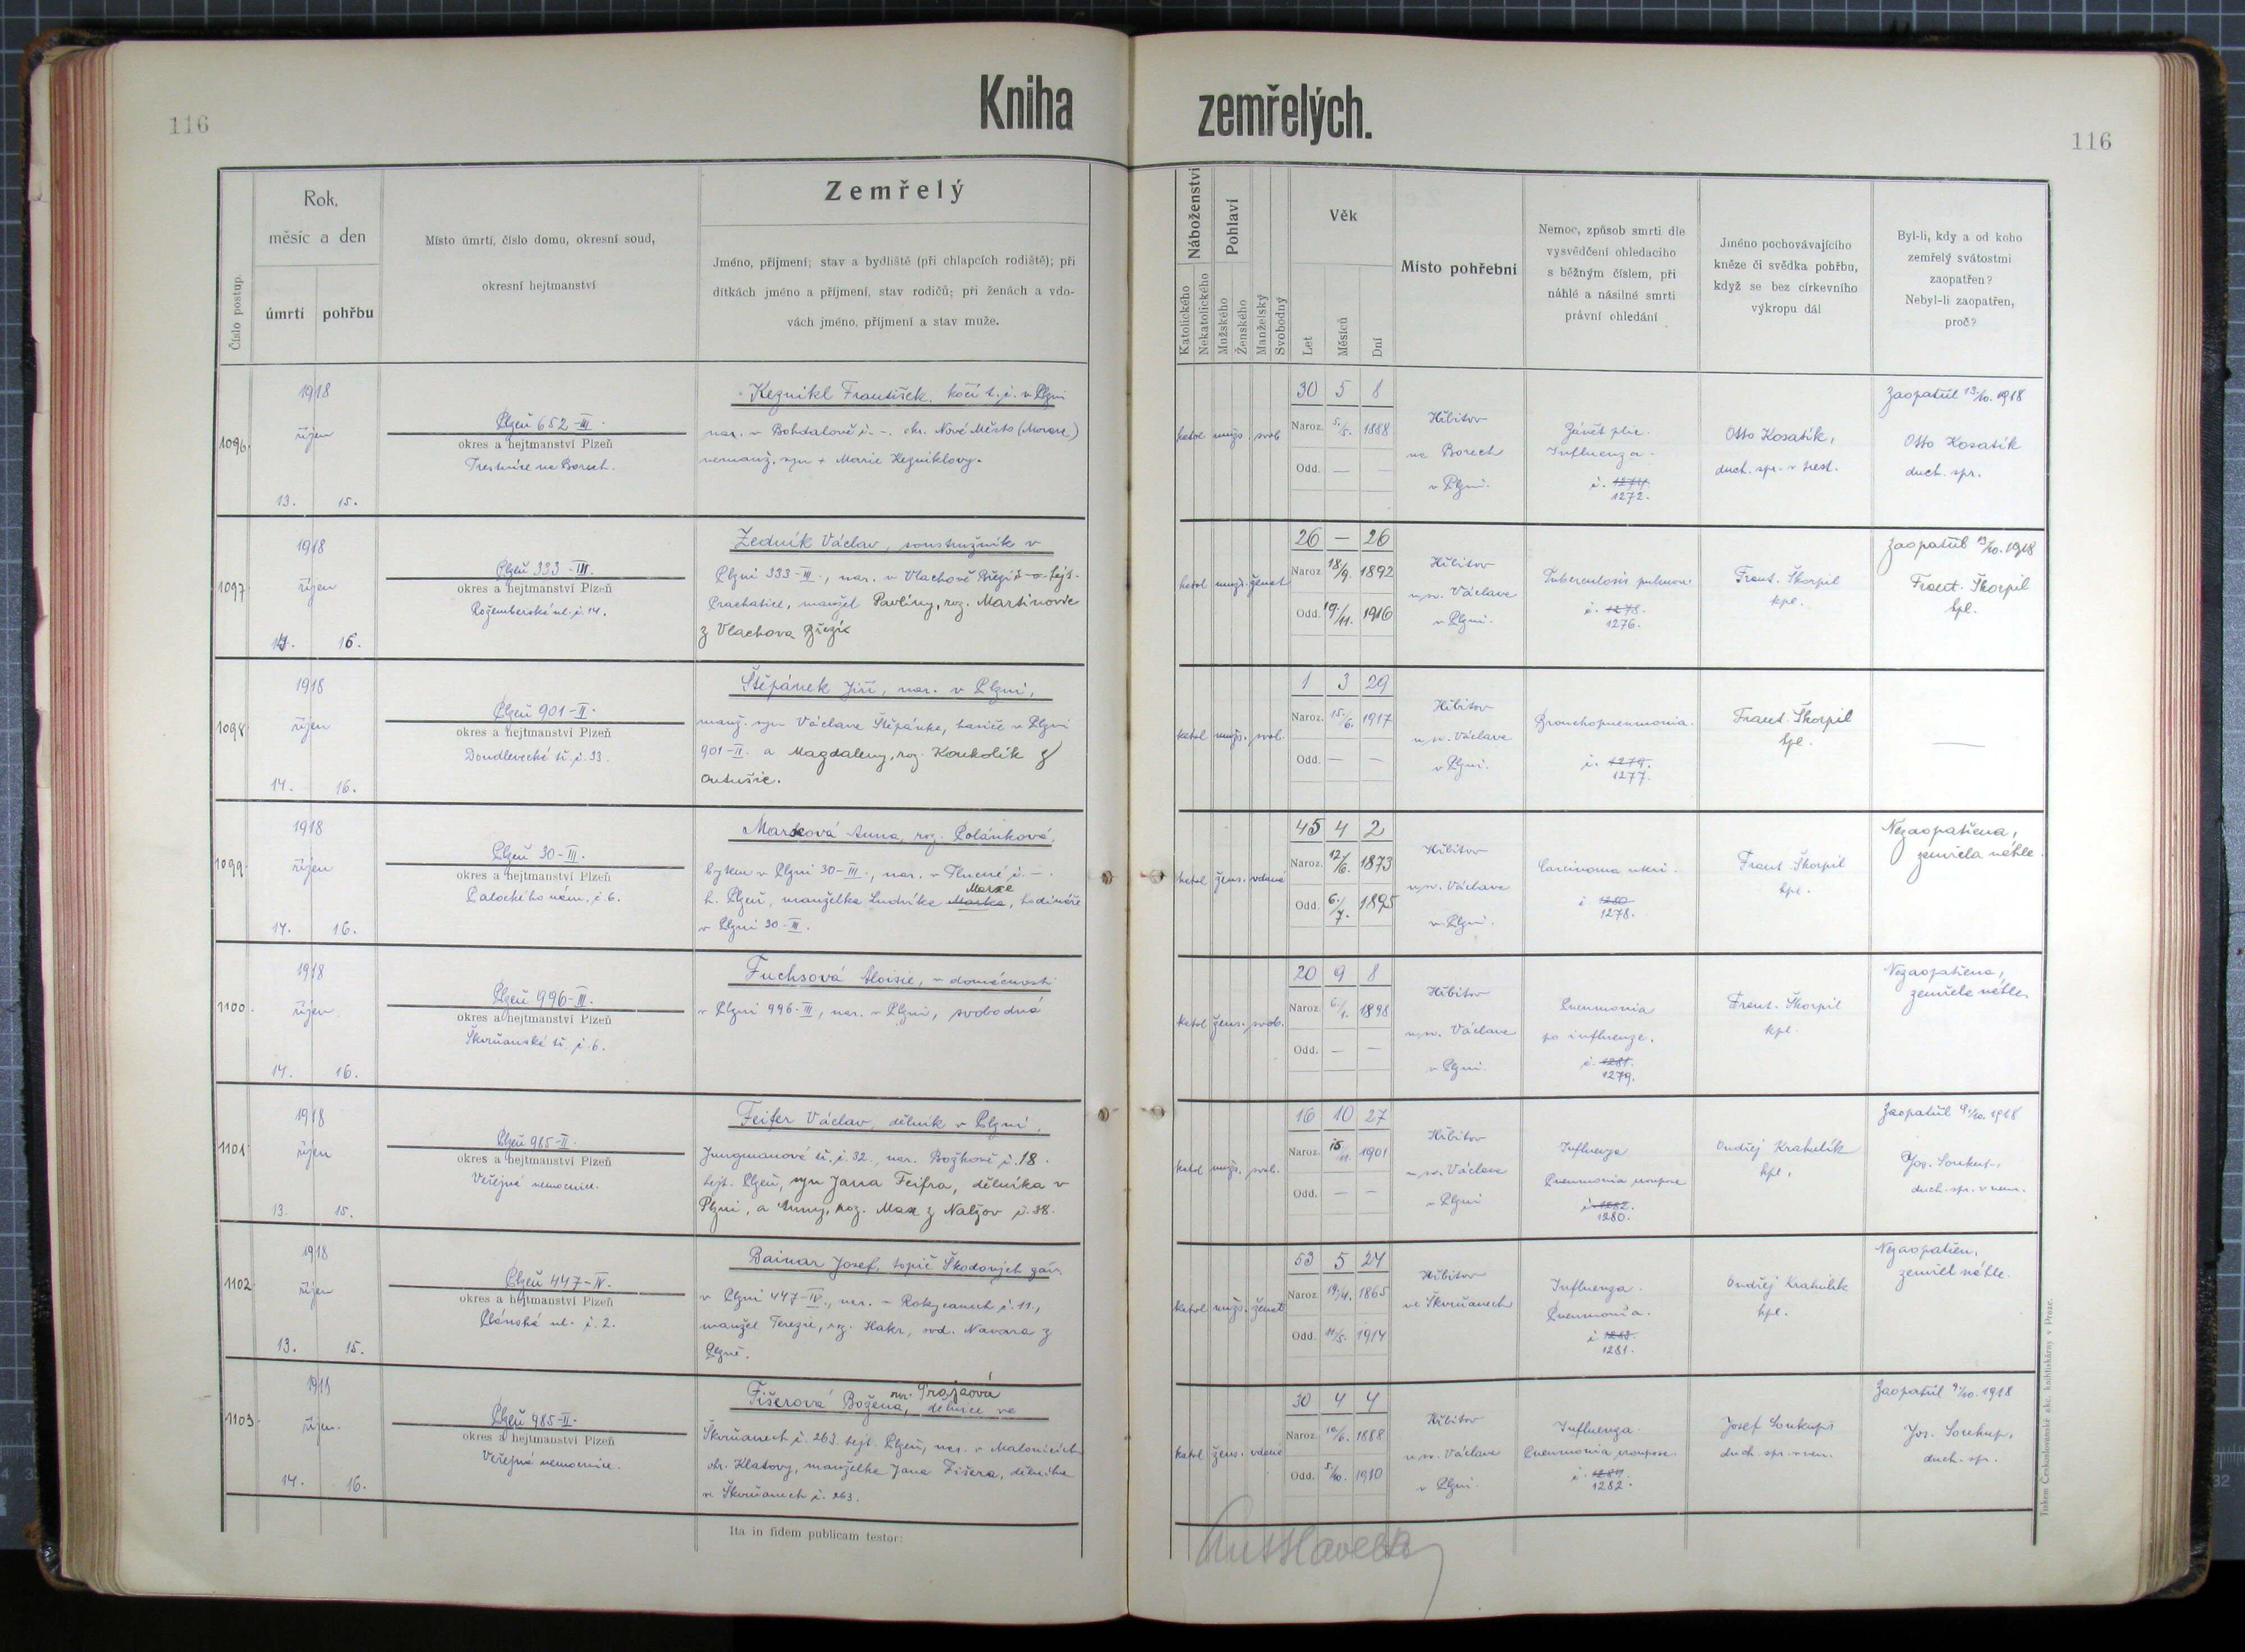 116
Kniha zemřelých.
116
Číslo postup.
Rok, měsíc a den
úmrtí
pohřbu
Místo úmrtí, číslo domu, okresní soud,
okresní hejtmanství
Zemřelý
Jméno, příjmení; stav a bydliště (při chlapcích rodiště); při
dítkách jméno a příjmení, stav rodičů; při ženách a vdo-
vách jméno, příjmení a stav muže.
Náboženství
Katolického
Nekatolického
Pohlaví
Mužského
Ženského
Manželský
Svobodný
Věk
Let
Měsíců
Dní
Místo pohřební
Nemoc, způsob smrti dle
vysvědčení ohledacího
s běžným číslem, při
náhlé a násilné smrti
právní ohledání
Jméno pochovávajícího
kněze či svědka pohřbu,
když se bez církevního
výkropu dál
Byl-li, kdy a od koho
zemřelý svátostmi
zaopatřen?
Nebyl-li zaopatřen,
proč?
1096.
1918
říjen
13. 15.
Plzeň 652-III.
okres a hejtmanství Plzeň
Trestnice na Borech.
Kegnikl František, kočí t. č. v Plzni
nar. v Bohdalově č. -. okr. Nové Město (Morava)
nemanž. syn + Marie
katol mužs. svob
30 5 8
Naroz. 5./5. 1888
Odd. — —
Hřbitov
na Borech
v Plzni.
Zánět plic.
Influenza.
č. 1274.
1272.
Otto Kosatík,
duch. spr. v trest.
Zaopatřil 13./10. 1918
Otto Kosatík
duch. spr.
1097.
1918
říjen
14. 16.
Plzeň 333-III.
okres a hejtmanství Plzeň
Rožmberská ul. č. 14.
Zedník Václav, soustružník v
Plzni 333-III., nar. v Vlachově Březí hejt.
Prachatice, manžel Pavlíny, roz. Martinovic
z Vlachova Březí
katol mužs. ženat
26 — 26
Naroz. 18/9. 1892
Odd. 19./11. 1916
Hřbitov
u sv. Václava
v Plzni.
Tuberculosis pulmon
č. 1278.
1276.
Frant. Škorpil
kpl.
Zaopatřil 13/10. 1918
Frant. Škorpil
kpl.
1098.
1918
říjen
14. 16.
Plzeň 901-II.
okres a hejtmanství Plzeň
Doudlevecká tř. č. 33.
Štěpánek Jiří, nar. v Plzni,
manž. syn Václava Štěpánka, v Plzni
901-II. a Magdaleny, roz. Koukolík z
katol mužs. svob.
1 3 29
Naroz. 15./6. 1917
Odd. — —
Hřbitov
u sv. Václava
v Plzni.
Bronchopneumonia.
č. 1279.
1277.
Frant. Škorpil
kpl.
—
1099.
1918
říjen
14. 16.
Plzeň 30-III.
okres a hejtmanství Plzeň
Palackého nám. č. 6.
Marxová Anna, roz. Polánková,
bytem v Plzni 30-III., nar. v Tlucné č. -.
h. Plzeň, manželka Ludvíka Marka Marxe, hodináře
v Plzni 30-III.
katol žens. vdaná
45 4 2
Naroz. 12/6. 1873
Odd. 6./7. 1895
Hřbitov
u sv. Václava
v Plzni.
Carcinoma uteri.
č. 1280
1278.
Frant. Škorpil
kpl.
Nezaopatřena,
zemřela náhle.
1100.
1918
říjen
14. 16.
Plzeň 996-III.
okres a hejtmanství Plzeň
Škvrňanská tř. č. 6.
Fuchsová Aloisie, v domácnosti
v Plzni 996-III, nar. v Plzni, svobodná
katol žens. svob.
20 9 8
Naroz. 6./1. 1898
Odd. — —
Hřbitov
u sv. Václava
v Plzni.
Pneumonia
po influenze.
č. 1281.
1279.
Frant. Škorpil
kpl.
Nezaopatřena,
zemřela náhle.
1101.
1918
říjen
13. 15.
Plzeň 985-II.
okres a hejtmanství Plzeň
Veřejná nemocnice.
Feifer Václav, dělník v Plzni,
Jungmanova tř. č. 32., nar. Božkově č. 18.
hejt. Plzeň, syn Jana Feifra, dělníka v
Plzni, a Anny, roz. Max z Nalžov č. 38.
katol mužs. svob.
16 10 27
Naroz. 15./11. 1901
Odd. — —
Hřbitov
u sv. Václava
v Plzni
Influenza
Pneumonia crouposa
č. 1282.
1280.
Ondřej Krahulík
kpl.
Zaopatřil 9./10. 1918
Jos. Soukup,
duch. spr. v nem.
1102.
1918
říjen
13. 15.
Plzeň 447-IV.
okres a hejtmanství Plzeň
Plánská ul. č. 2.
Bainar Josef, topič Škodových záv.
v Plzni 447-IV., nar. v Rokycanech č. 11.,
manžel Terezie, roz. Hakr, ovd. Navara z
Plzně.
katol mužs. ženat
53 5 24
Naroz. 19./4. 1865
Odd. 11/5. 1914
Hřbitov
ve Škvrňanech
Influenza.
Pneumonia.
č. 1283.
1281.
Ondřej Krahulík
kpl.
Nezaopatřen,
zemřel náhle.
1103.
1918
říjen.
14. 16.
Plzeň 985-II.
okres a hejtmanství Plzeň
Veřejná nemocnice.
Fišerová Božena, dělnice ve
Škvrňanech č. 263. hejt. Plzeň, nar. v Malonicích
okr. Klatovy, manželka Jana Fišera, dělníka
ve Škvrňanech č. 263.
katol žens. vdaná
30 4 4
Naroz. 10/6. 1888
Odd. 5./10. 1910
Hřbitov
u sv. Václava
v Plzni.
Influenza.
Pneumonia crouposa.
č. 1284.
1282.
Josef Soukup
duch. spr. v nem.
Zaopatřil 9/10. 1918
Jos. Soukup,
duch. spr.
Ita in fidem publicam testor:
Tiskem Českoslovanské akc. knihtiskárny v Praze.